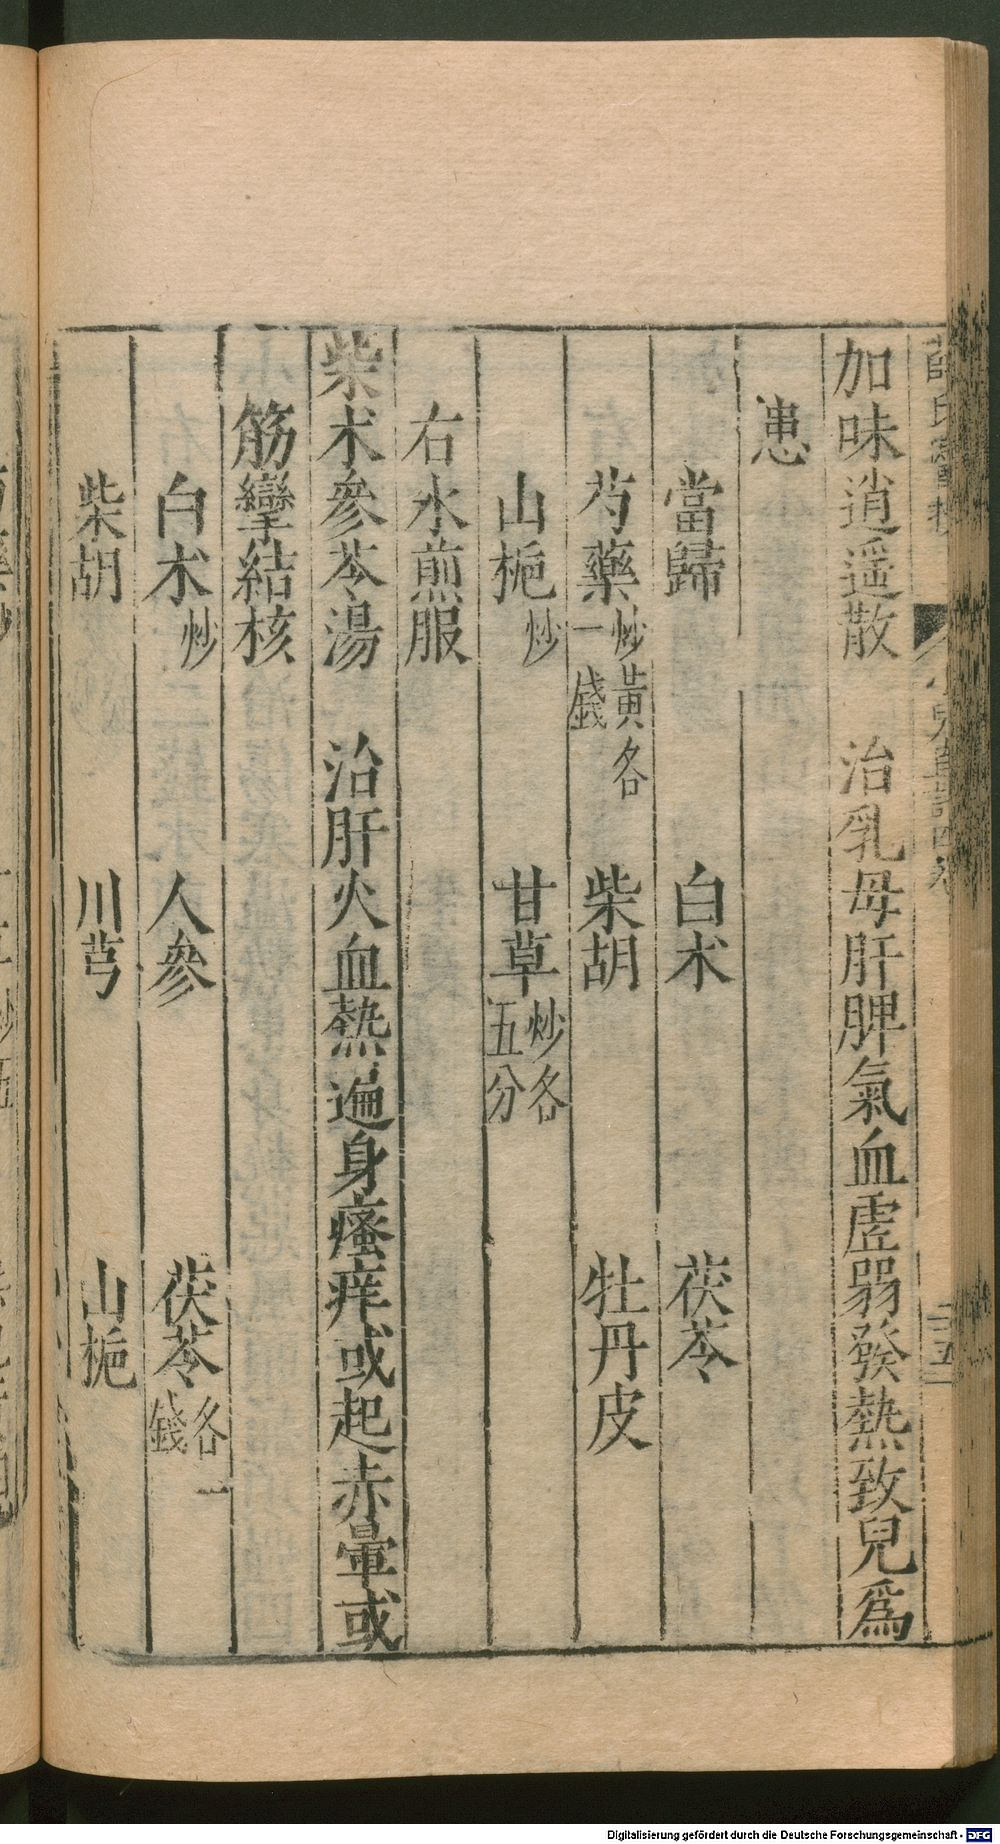 加味逍遥散　治乳母肝脾氣血虛弱發熱致兒爲
患
當歸　白朮　茯苓
芍藥炒黃各一錢　柴胡　牡丹皮
山梔炒　甘草炒各五分
右水煎服
柴朮參苓湯　治肝火血熱遍身瘙痒或起赤暈或
筋攣結核
白朮炒　人參　茯苓各一錢
柴胡　川芎　山梔
Digitalisierung gefördert durch die Deutsche Forschungsgemeinschaft - DFG